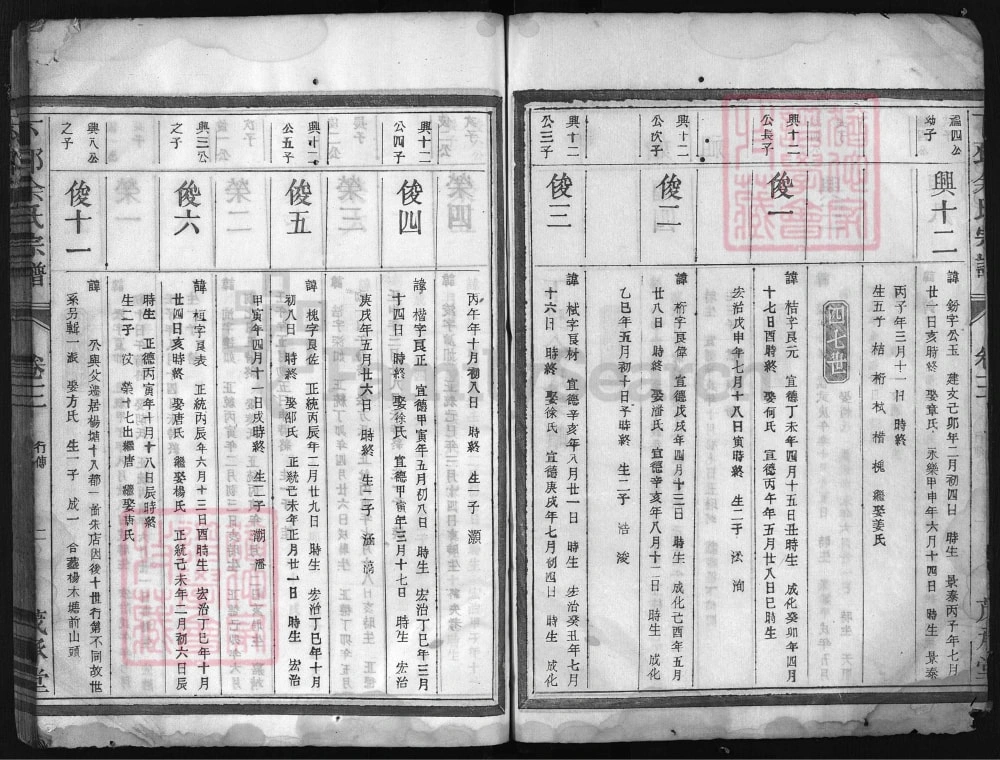 溫四公
幼子
興十二
諱 鈁字公玉 建文己卯年二月初四日 時生 景泰丙子年七月
廿一日亥時終 娶章氏 永樂甲申年六月十四日 時生 景泰
丙子年三月十一日 時終
生五子 桔 桁 栻 楷 槐 繼娶姜氏
四七世
興十二
公長子
俊一
諱 桔字良元 宣德丁未年四月十五日丑時生 成化癸卯年四月
十七日酉時終 娶何氏 宣德丙午年五月廿八日巳時生
宏治戊申年七月十八日寅時終 生二子 洣 洵
興十二
公次子
俊二
諱 桁字良偉 宣德戊戌年四月十三日 時生 成化己酉年五月
廿八日 時終 娶潘氏 宣德辛亥年八月十二日 時生 成化
乙巳年五月初十日子時終 生二子 浩 浚
興十二
公三子
俊三
諱 栻字良材 宣德辛亥年八月廿一日 時生 宏治癸丑年七月
十六日 時終 娶徐氏 宣德庚戌年七月初四日 時生 成化
丙午年十月初八日 時終 生一子 灝
興十二
公四子
俊四
諱 楷字良正 宣德甲寅年五月初八日 時生 宏治丁巳年三月
十四日 時終 娶徐氏 宣德甲寅年三月十七日 時生 宏治
庚戌年五月廿六日 時終 生二子
興十二
公五子
俊五
諱 槐字良佐 正統丙辰年二月廿九日 時生 宏治丁巳年十月
初八日 時終 娶邵氏 正統己未年正月廿一日 時生 宏治
甲寅年四月十一日戌時終 生二子 潮 潘
興三公
之子
俊六
諱 桓字良表 正統丙辰年六月十三日酉時生 宏治丁巳年十月
廿四日亥時終 娶唐氏 繼娶楊氏 正統己未年二月初六日辰
時生 正德丙寅年十月十八日辰時終
生二子 汶 榮十七出繼唐 繼娶唐氏
興八公
之子
俊十一
諱 公與父遷居楊塘十八都一啚朱店因後十世行第不同故世
系另輯一派 娶方氏 生一子 成一 合塟楊木塘前山頭
余氏宗譜
卷三
行傳